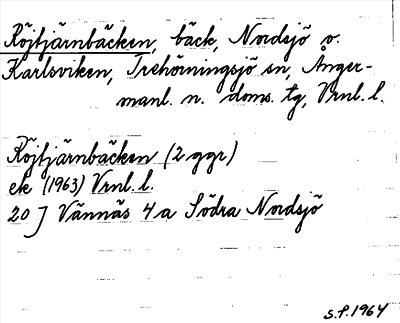 Röjtjärnbäcken, bäck, Nordsjö o.
Karlsviken, Trehörningsjö sn, Ånger-
manl. n. doms. tg, Vrnl. l.
Röjtjärnbäcken (2 ggr)
ek (1963) Vrnl. l.
20 J Vännäs 4a Södra Nordsjö
S.P. 1964